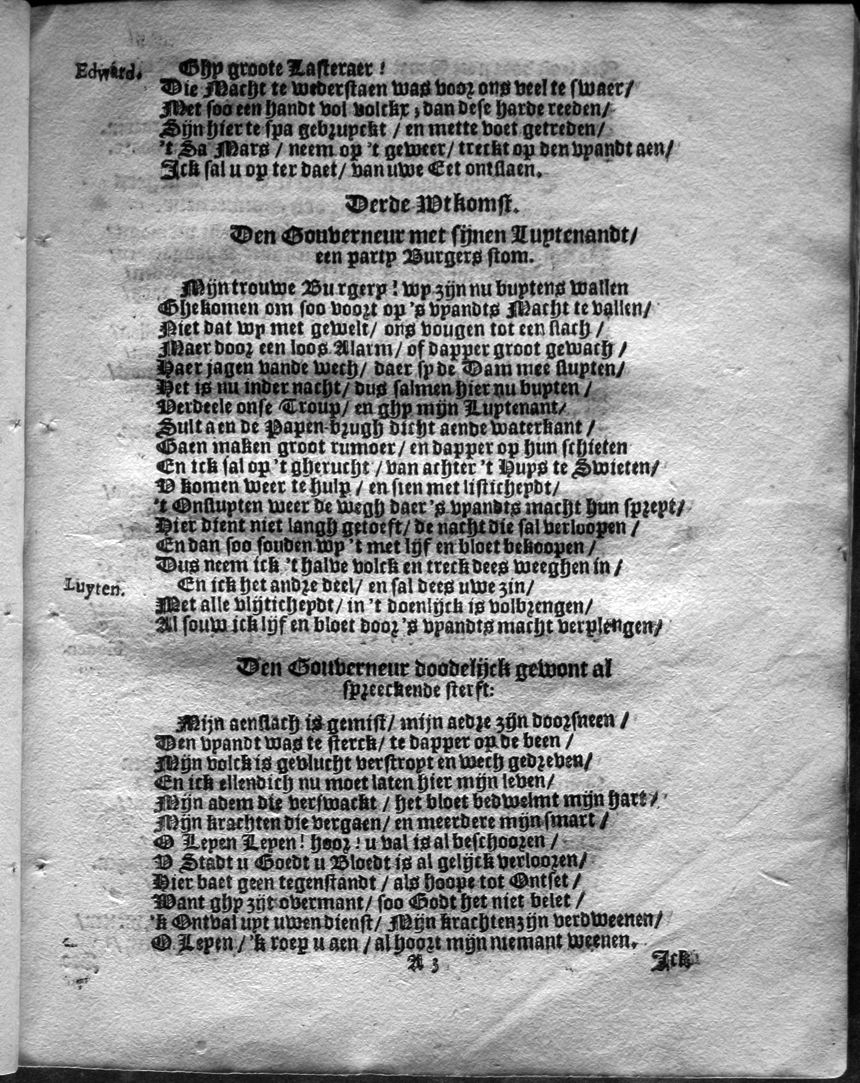 Edward. Ghy groote Lasteraer!
Die Macht te wederstaen was voor ons veel te swaer/
Met soo een handt vol volckx; dan dese harde reeden/
Sijn hier te spa gebruyckt / en mette voet getreden/
't Sa Mars / neem op 't geweer/ treckt op den vyandt aen/
Ick sal u op ter daet/ van uwe Eet ontslaen.
Derde Wtkomst.
Den Gouverneur met sijnen Luytenandt/
een party Burgers stom.
Mijn trouwe Burgery! wy zijn nu buytens wallen
Ghekomen om soo voort op 's vyandts Macht te vallen/
Niet dat wy met gewelt/ ons vougen tot een slach /
Maer door een loos Alarm/ of dapper groot gewach /
Haer jagen vande wech/ daer sy de Dam mee stupten/
Het is nu inder nacht/ dus salmen hier nu buyten /
Verdeele onse Troup/ en ghy mijn Luytenant/
Sult aen de Papen-brugh dicht aende waterkant /
Gaen maken groot rumoer/ en dapper op hun schieten
En ick sal op 't gherucht / van achter 't Huys te Swieten/
V komen weer te hulp / en sien met listicheydt/
't Onslupten weer de wegh daer 's vyandts macht hun spreyt/
Hier dient niet langh getoeft/ de nacht die sal verloopen /
En dan soo souden wy 't met lijf en bloet bekoopen /
Dus neem ick 't halve volck en treck dees weeghen in /
Luyten. En ick het andre deel/ en sal dees uwe zin/
Met alle vlijticheydt/ in 't doenlijck is volbrengen/
Al souw ick lijf en bloet door 's vyandts macht verplengen/
Den Gouverneur doodelijck gewont al
spreeckende sterft:
Mijn aenslach is gemist/ mijn aedre zijn doorsneen /
Den vyandt was te sterck/ te dapper op de been /
Mijn volck is gevlucht verstroyt en wech gedreven/
En ick ellendich nu moet laten hier mijn leven/
Mijn adem die verswackt / het bloet bedwelmt mijn hart /
Mijn krachten die vergaen/ en meerdere mijn smart /
O Leyen Leyen! hoor! u val is al beschooren /
V Stadt u Goedt u Bloedt is al gelijck verlooren/
Hier baet geen tegenstandt / als hoope tot Ontset /
Want ghy zijt overmant/ soo Godt het niet belet /
'k Ontval uyt uwen dienst/ Mijn krachten zijn verdweenen/
O Leyen/ 'k roep u aen / al hoort mijn niemant weenen.
A 3 Ick